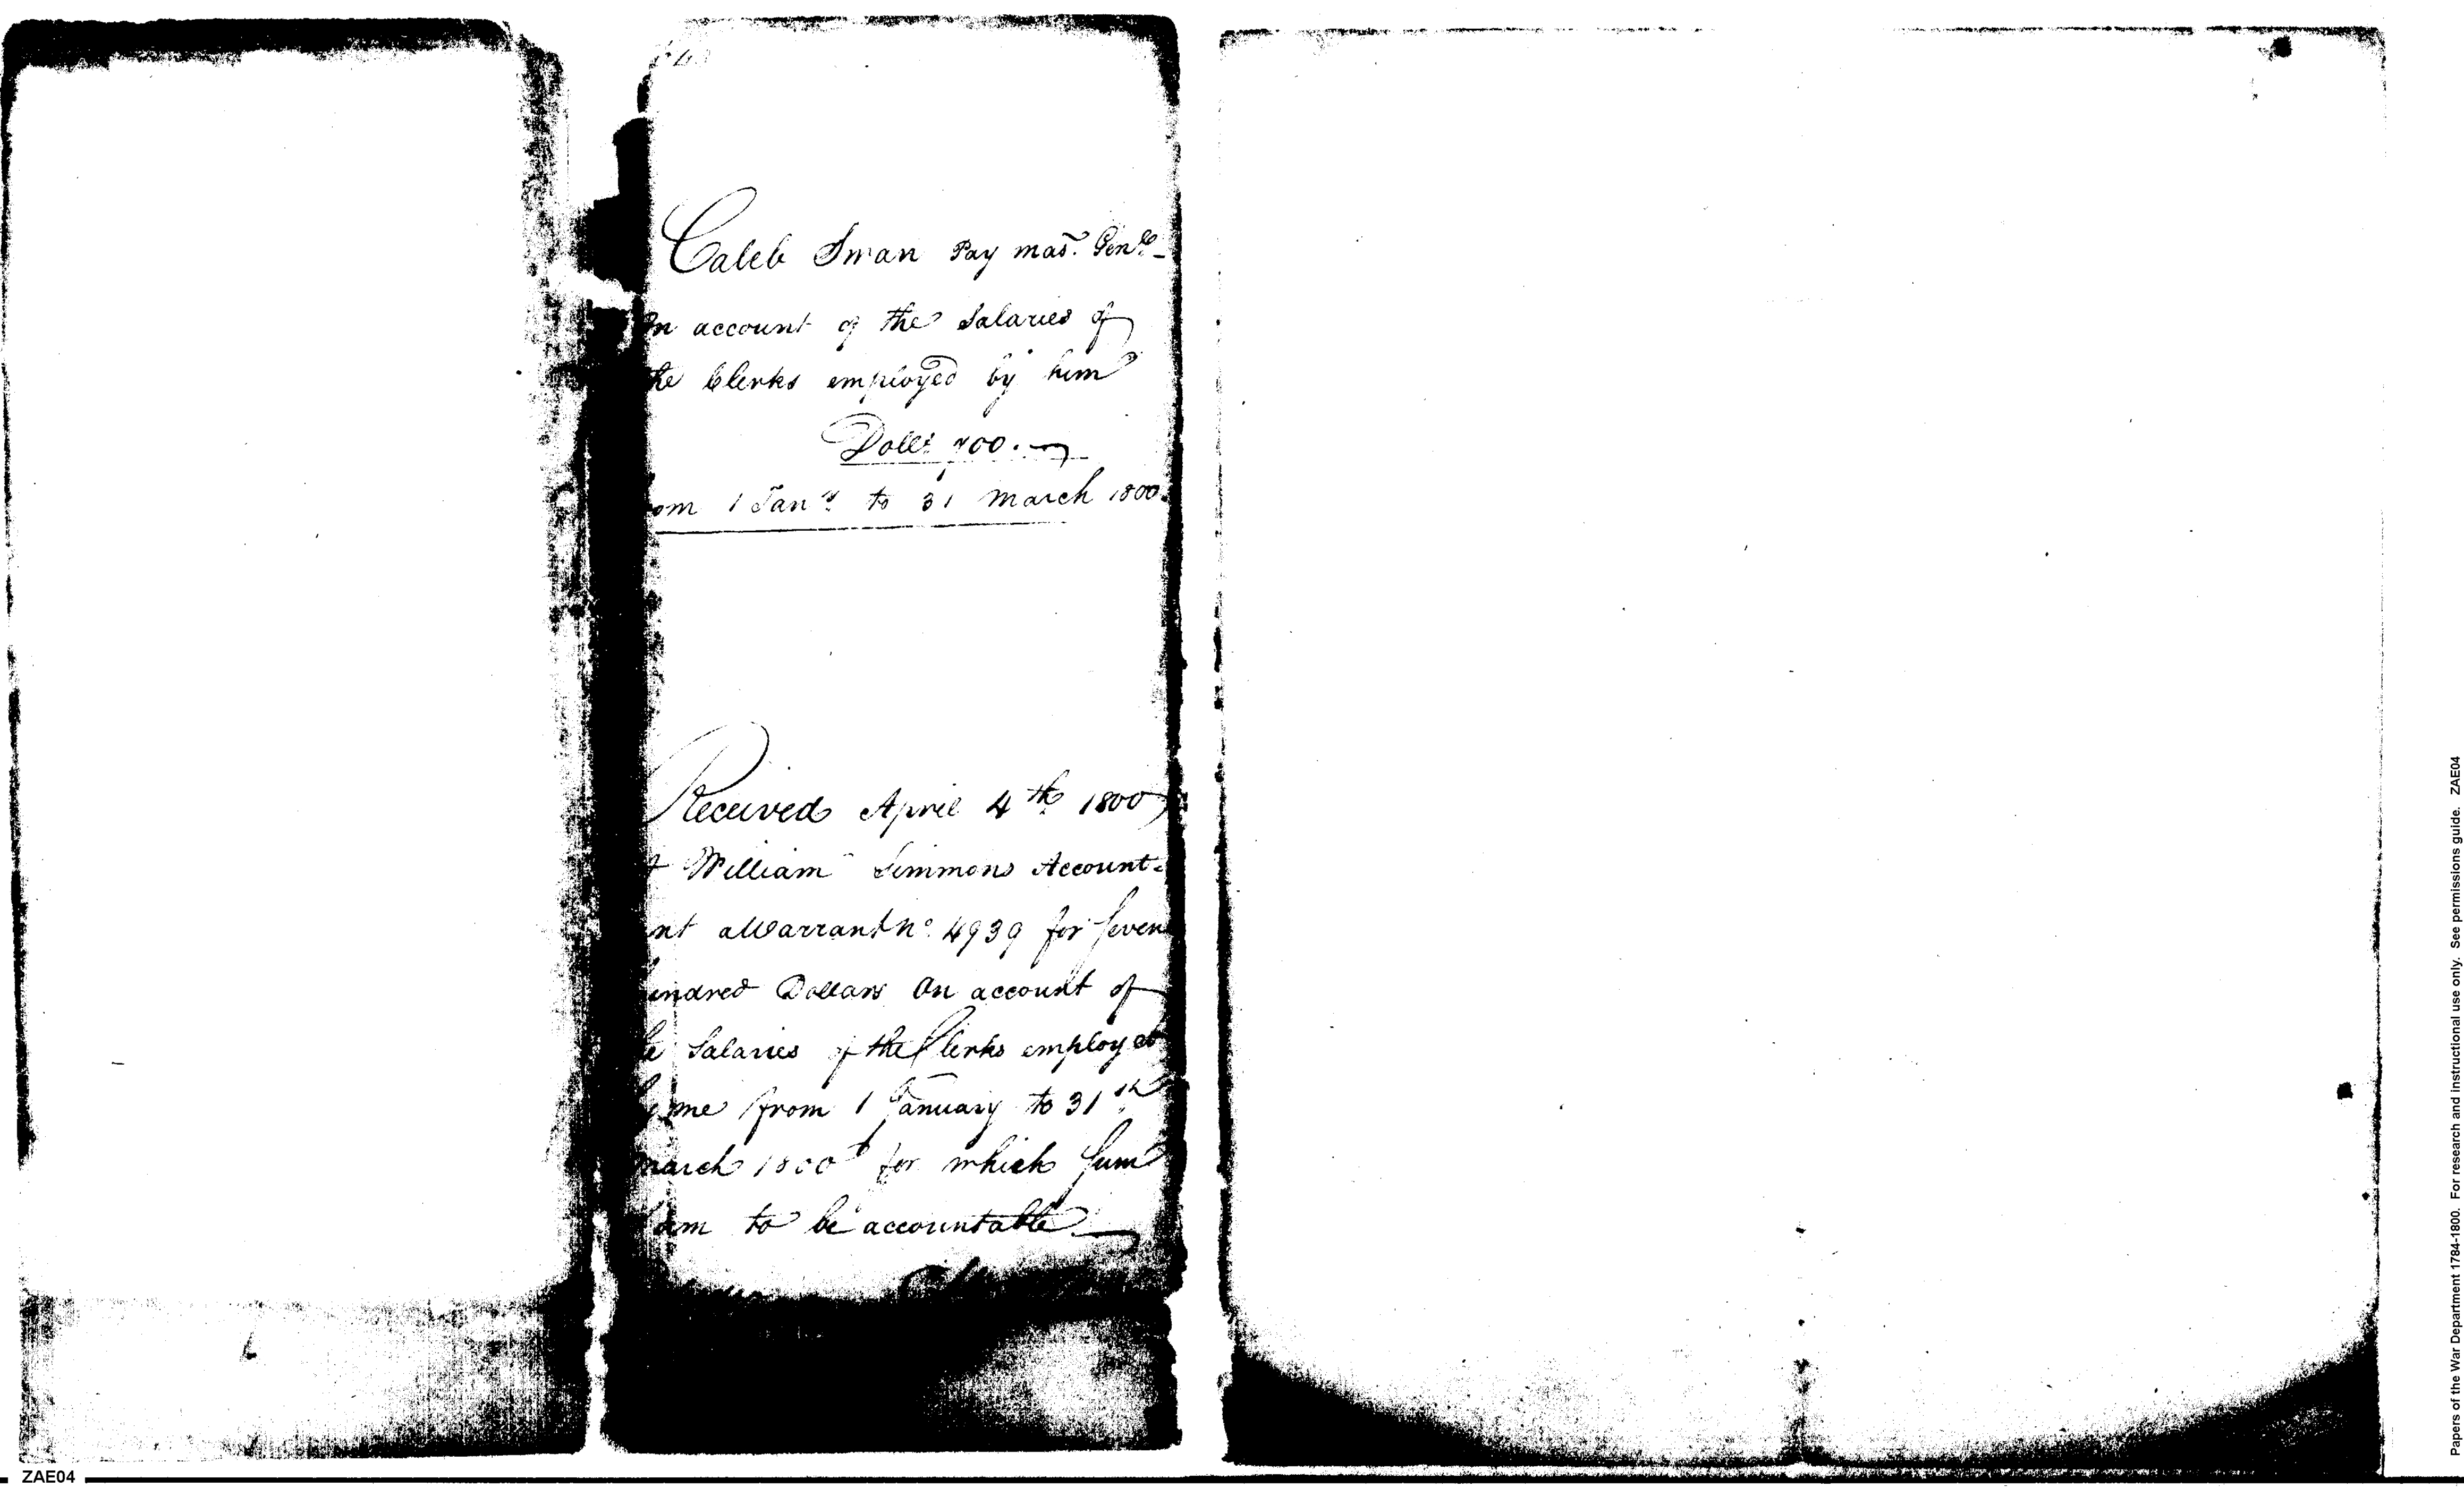 Caleb Swan Pay mas.r Gen.l
On account of the Salaries of
the Clerks employed by him
Doll.s 700.
om 1 Jan.y to 31 March 1800.
Received April 4th 1800
William Simmons Account-
nt a Warrant No. 4939 for Seven
undred Dollars On account of
he Salaries of the Clerks employed
me from 1 January to 31st
March 1800 for which Sum
am to be accountable.
ZAE04
Papers of the War Department 1784-1800. For research and instructional use only. See permissions guide. ZAE04